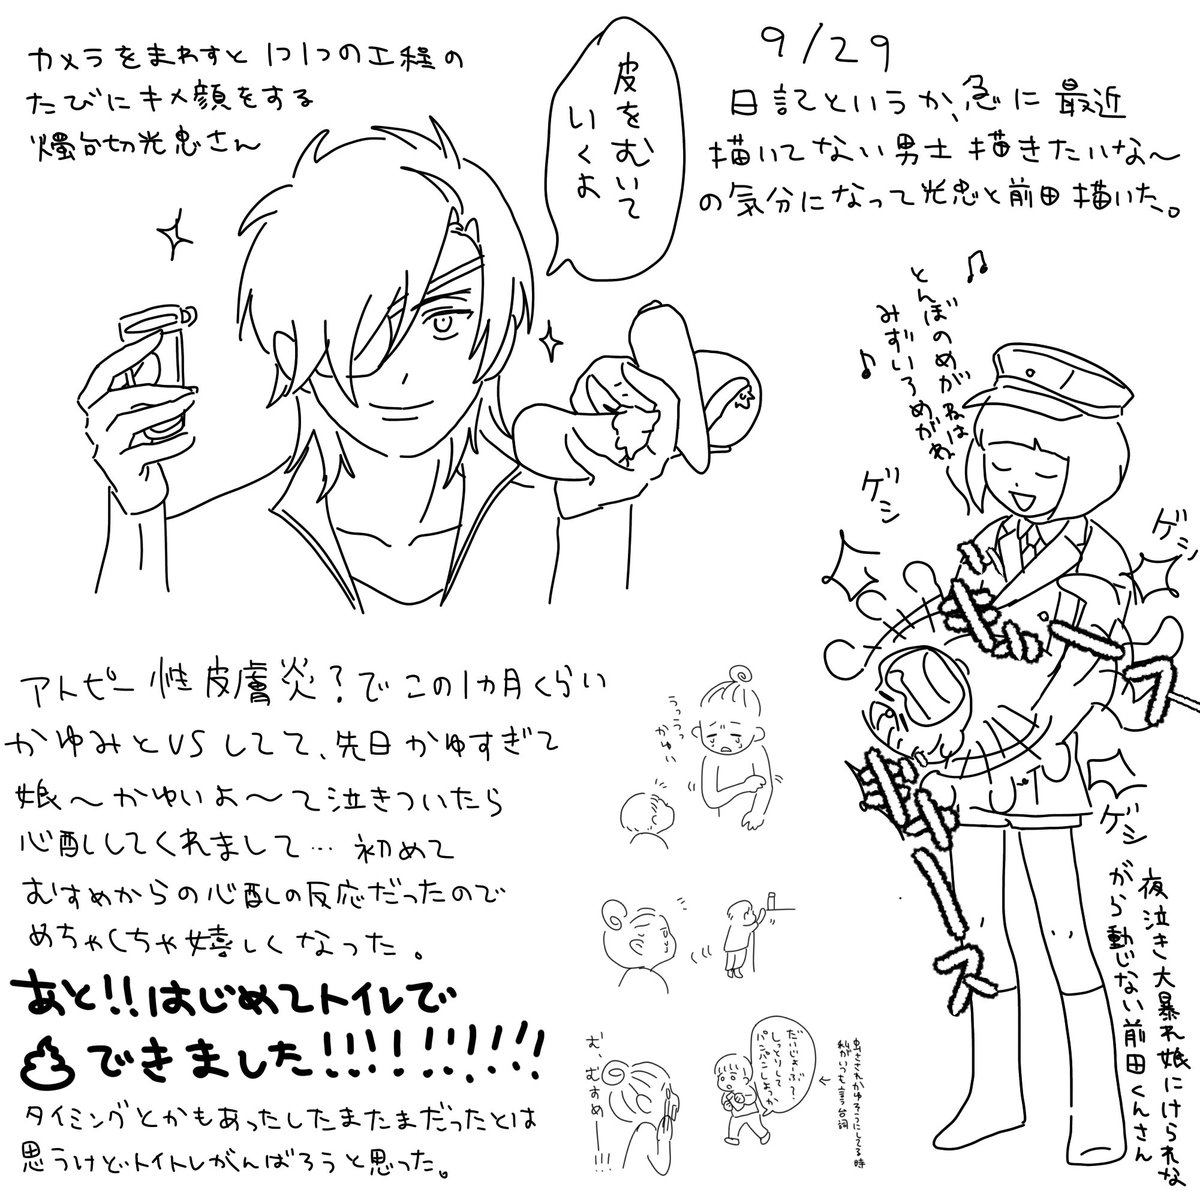 カメラをまわすと1つ1つの工程の
たびにキメ顔をする
燭台切光忠さん
皮をむいて
いくよ
9/29
日記というか、急に最近
描いてない男士描きたいな〜
の気分になって光忠と前田描いた。
♪
とんぼのめがねは
みずいろめがね
♪
ゲシ
ゲシ
ギャース
ギャース
ゲシ
夜泣き大暴れ娘にけられな
がら動じない前田くんさん
アトピー性皮膚炎?でこの1カ月くらい
かゆみとVSしてて、先日かゆすぎて
娘〜かゆいよ〜て泣きついたら
心配ししてくれまして…初めて
むすめからの心配の反応だったので
めちゃくちゃ嬉しくなった。
あと!!はじめてトイレで
できました!!!!!!!!!
タイミングとかもあったしたまたまだったとは
思うけどトイトレがんばろうと思った。
うっうっ
かゆい
だいじょーぶ?
しっとりして
パンパンしよっか
虫さされかゆそうにしてる時
私がいつも言う台詞
む、むすめ
ーー!!!